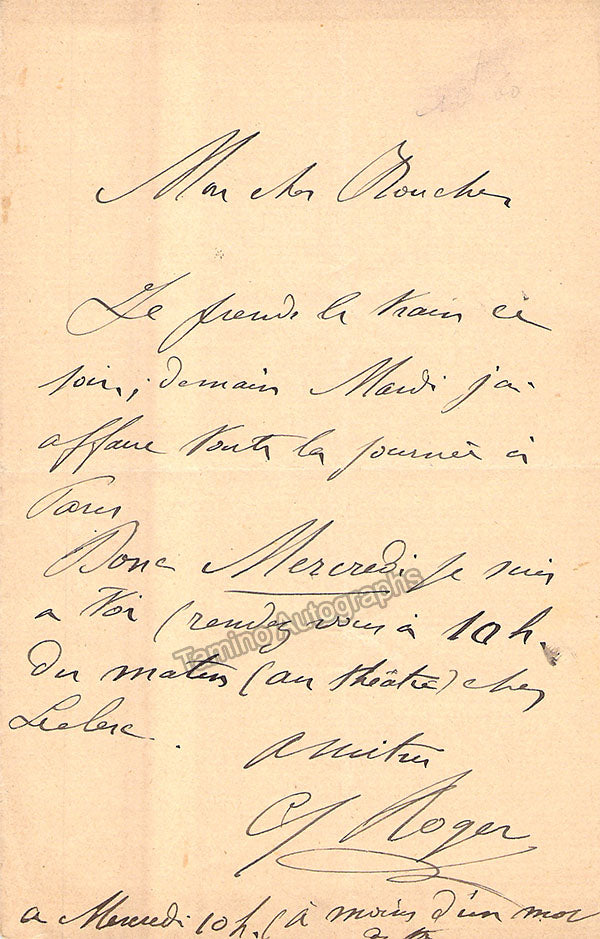 Mon cher Roucher
Je prends le train ce
soir, demain Mardi j'ai
affaire toute la journée à
Paris
Donc Mercredi je suis
a toi (rendez vous à 10 h.
du matin (au théâtre) chez
Leclerc.
Amitiés
Roger
a Mercredi 10 h. (à moins d'un mot
Tamino Autographs